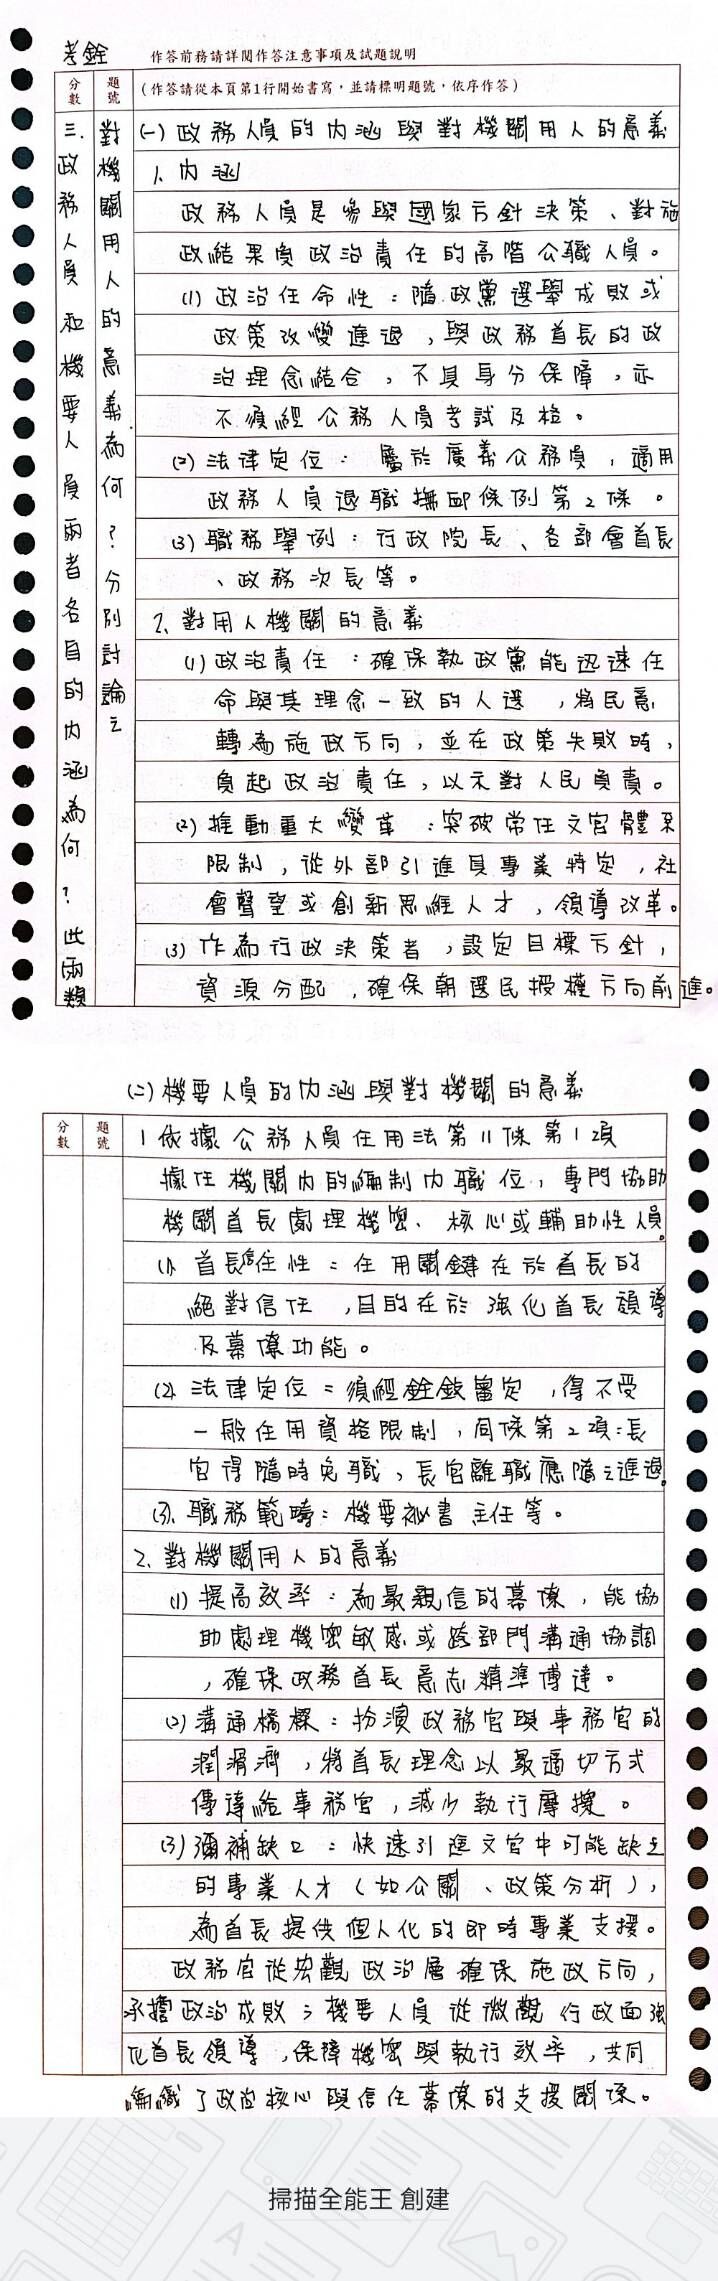 考銓
作答前務請詳閱作答注意事項及試題說明
分數
題號
(作答請從本頁第1行開始書寫,並請標明題號,依序作答)
三、政務人員和機要人員兩者各自的內涵為何?此兩類
對機關用人的意義為何?分別討論之
(一)政務人員的內涵與對機關用人的意義
1、內涵
政務人員是參與國家方針決策、對施
政結果負政治責任的高階公職人員。
(1)政治任命性:隨政黨選舉成敗或
政策改變進退,與政務首長的政
治理念結合,不具身分保障,亦
不須經公務人員考試及格。
(2)法律定位:屬於廣義公務員,適用
政務人員退職撫卹條例第2條。
(3)職務舉例:行政院長、各部會首長
、政務次長等。
2、對用人機關的意義
(1)政治責任:確保執政黨能迅速任
命與其理念一致的人選,將民意
轉為施政方向,並在政策失敗時,
負起政治責任,以示對人民負責。
(2)推動重大變革:突破常任文官體系
限制,從外部引進具專業特定,社
會聲望或創新思維人才,領導改革。
(3)作為行政決策者,設定目標方針,
資源分配,確保朝選民授權方向前進。
(二)機要人員的內涵與對機關的意義
分數
題號
1依據公務人員任用法第11條第1項
據任機關內的編制內職位,專門協助
機關首長處理機密、核心或輔助性人員。
(1)首長信任性:任用關鍵在於首長的
絕對信任,目的在於強化首長領導
及幕僚功能。
(2)法律定位:須經銓敘審定,得不受
一般任用資格限制,同條第2項:長
官得隨時免職,長官離職應隨之進退。
(3)、職務範疇:機要祕書、主任等。
2、對機關用人的意義
(1)提高效率:為最親信的幕僚,能協
助處理機密敏感或跨部門溝通協調
,確保政務首長意志精準傳達。
(2)溝通橋樑:扮演政務官與事務官的
潤滑濟,將首長理念以最適切方式
傳達給事務官,減少執行摩擦。
(3)彌補缺口:快速引進文官中可能缺乏
的專業人才(如公關、政策分析),
為首長提供個人化的即時專業支援。
政務官從宏觀政治層確保施政方向,
承擔政治成敗;機要人員從微觀行政面強
化首長領導,保障機密與執行效率,共同
編織了政治核心與信任幕僚的支援關係。
掃描全能王 創建